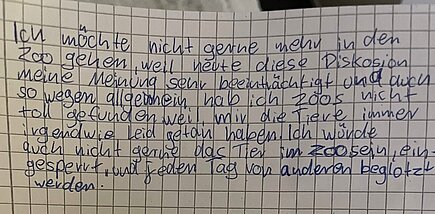 Ich möchte nicht gerne mehr in den
Zoo gehen, weil heute diese Diskosion
meine Meinung sehr beeinträchtigt und auch
so wegen allgemein, hab ich Zoos nicht
toll gefunden weil mir die Tiere immer
irgendwie leid getan haben. Ich würde
auch nicht gerne das Tier im Zoo sein, ein-
gesperrt, und jeden Tag von anderen beglotzt
werden.